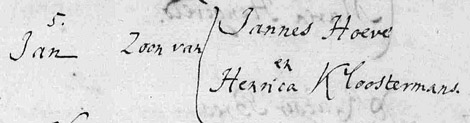 5.
Jan Zoon van
Jannes Hoeve
en
Henrica Kloostermans.